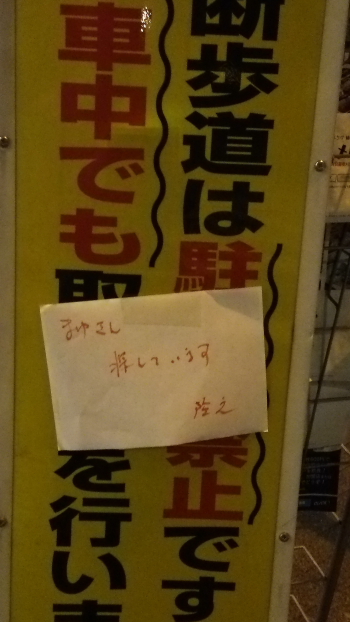 断歩道は駐禁止です
車中でも取を行いま
まゆさん
探しています